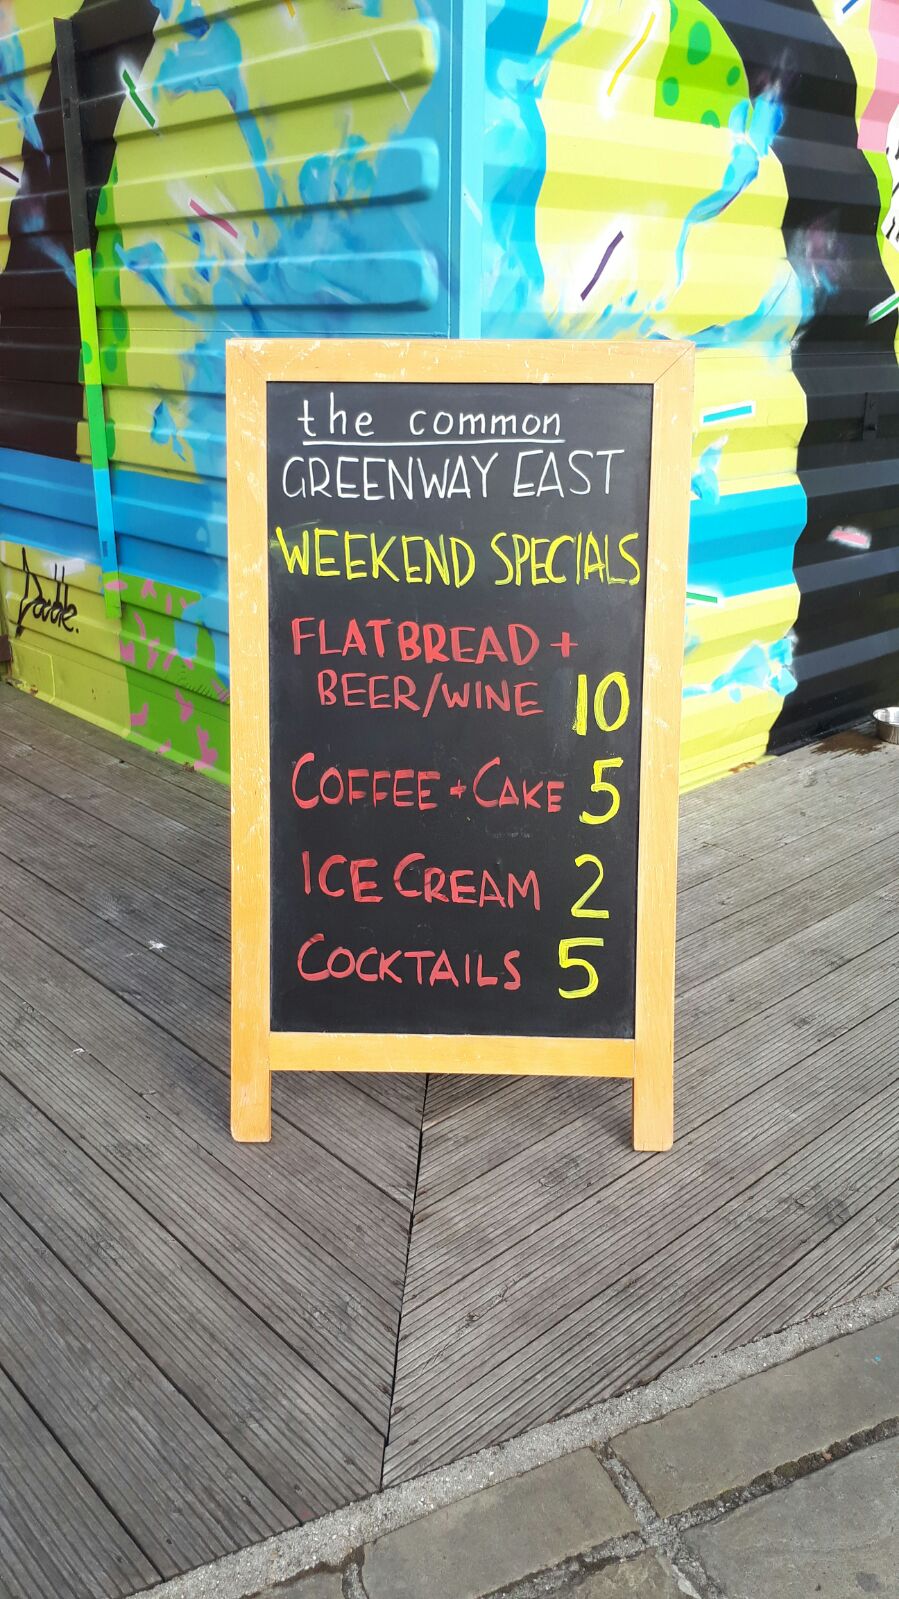 the common
GREENWAY EAST
WEEKEND SPECIALS
FLATBREAD +
BEER/WINE 10
COFFEE + CAKE 5
ICE CREAM 2
COCKTAILS 5